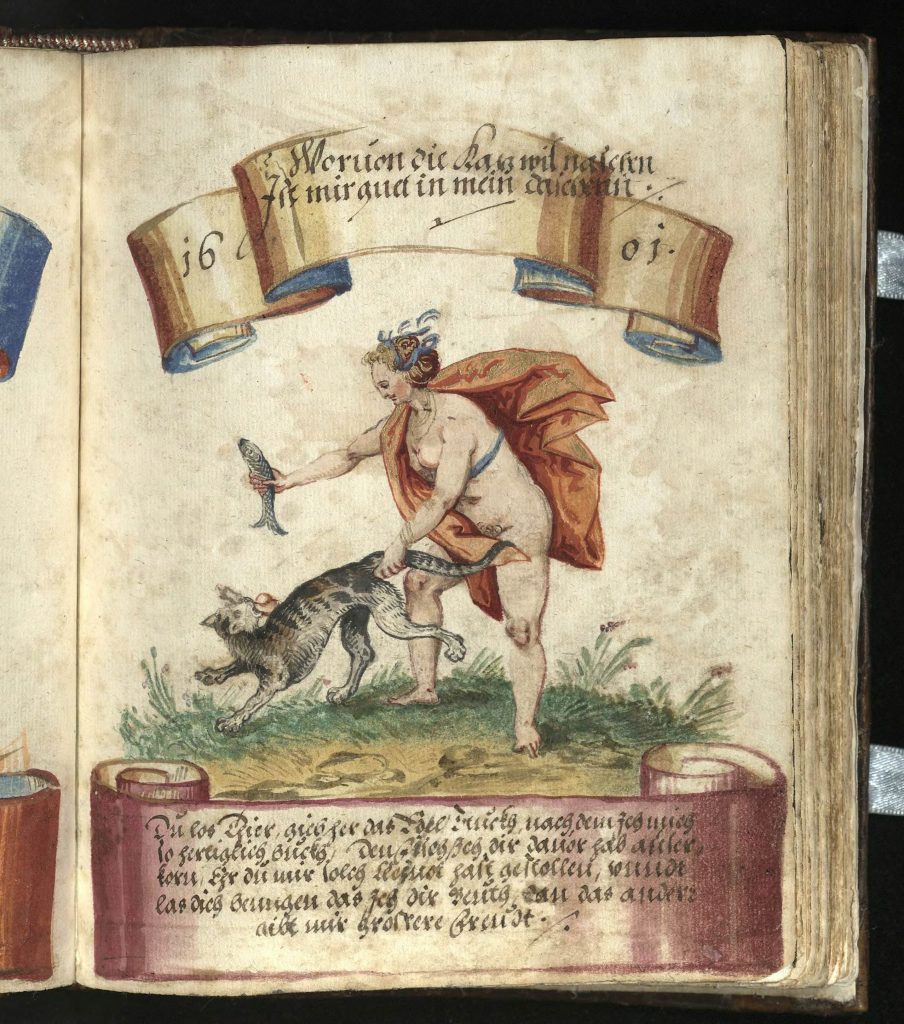 Woruon die Katz wil naschen
Ist mir guet in mein daschenn
16 01.
Du los Dier, gieb her das Edel Stuckh, nach dem Ich mich
so hertiglich buckh, Den Ich dir dauor hab außer,
korn, Ehr du mir solch hast gestollen, vnndt
las dich benungen das Ich dir Beuth, Dan das ander
gibt mir grössere freudt.